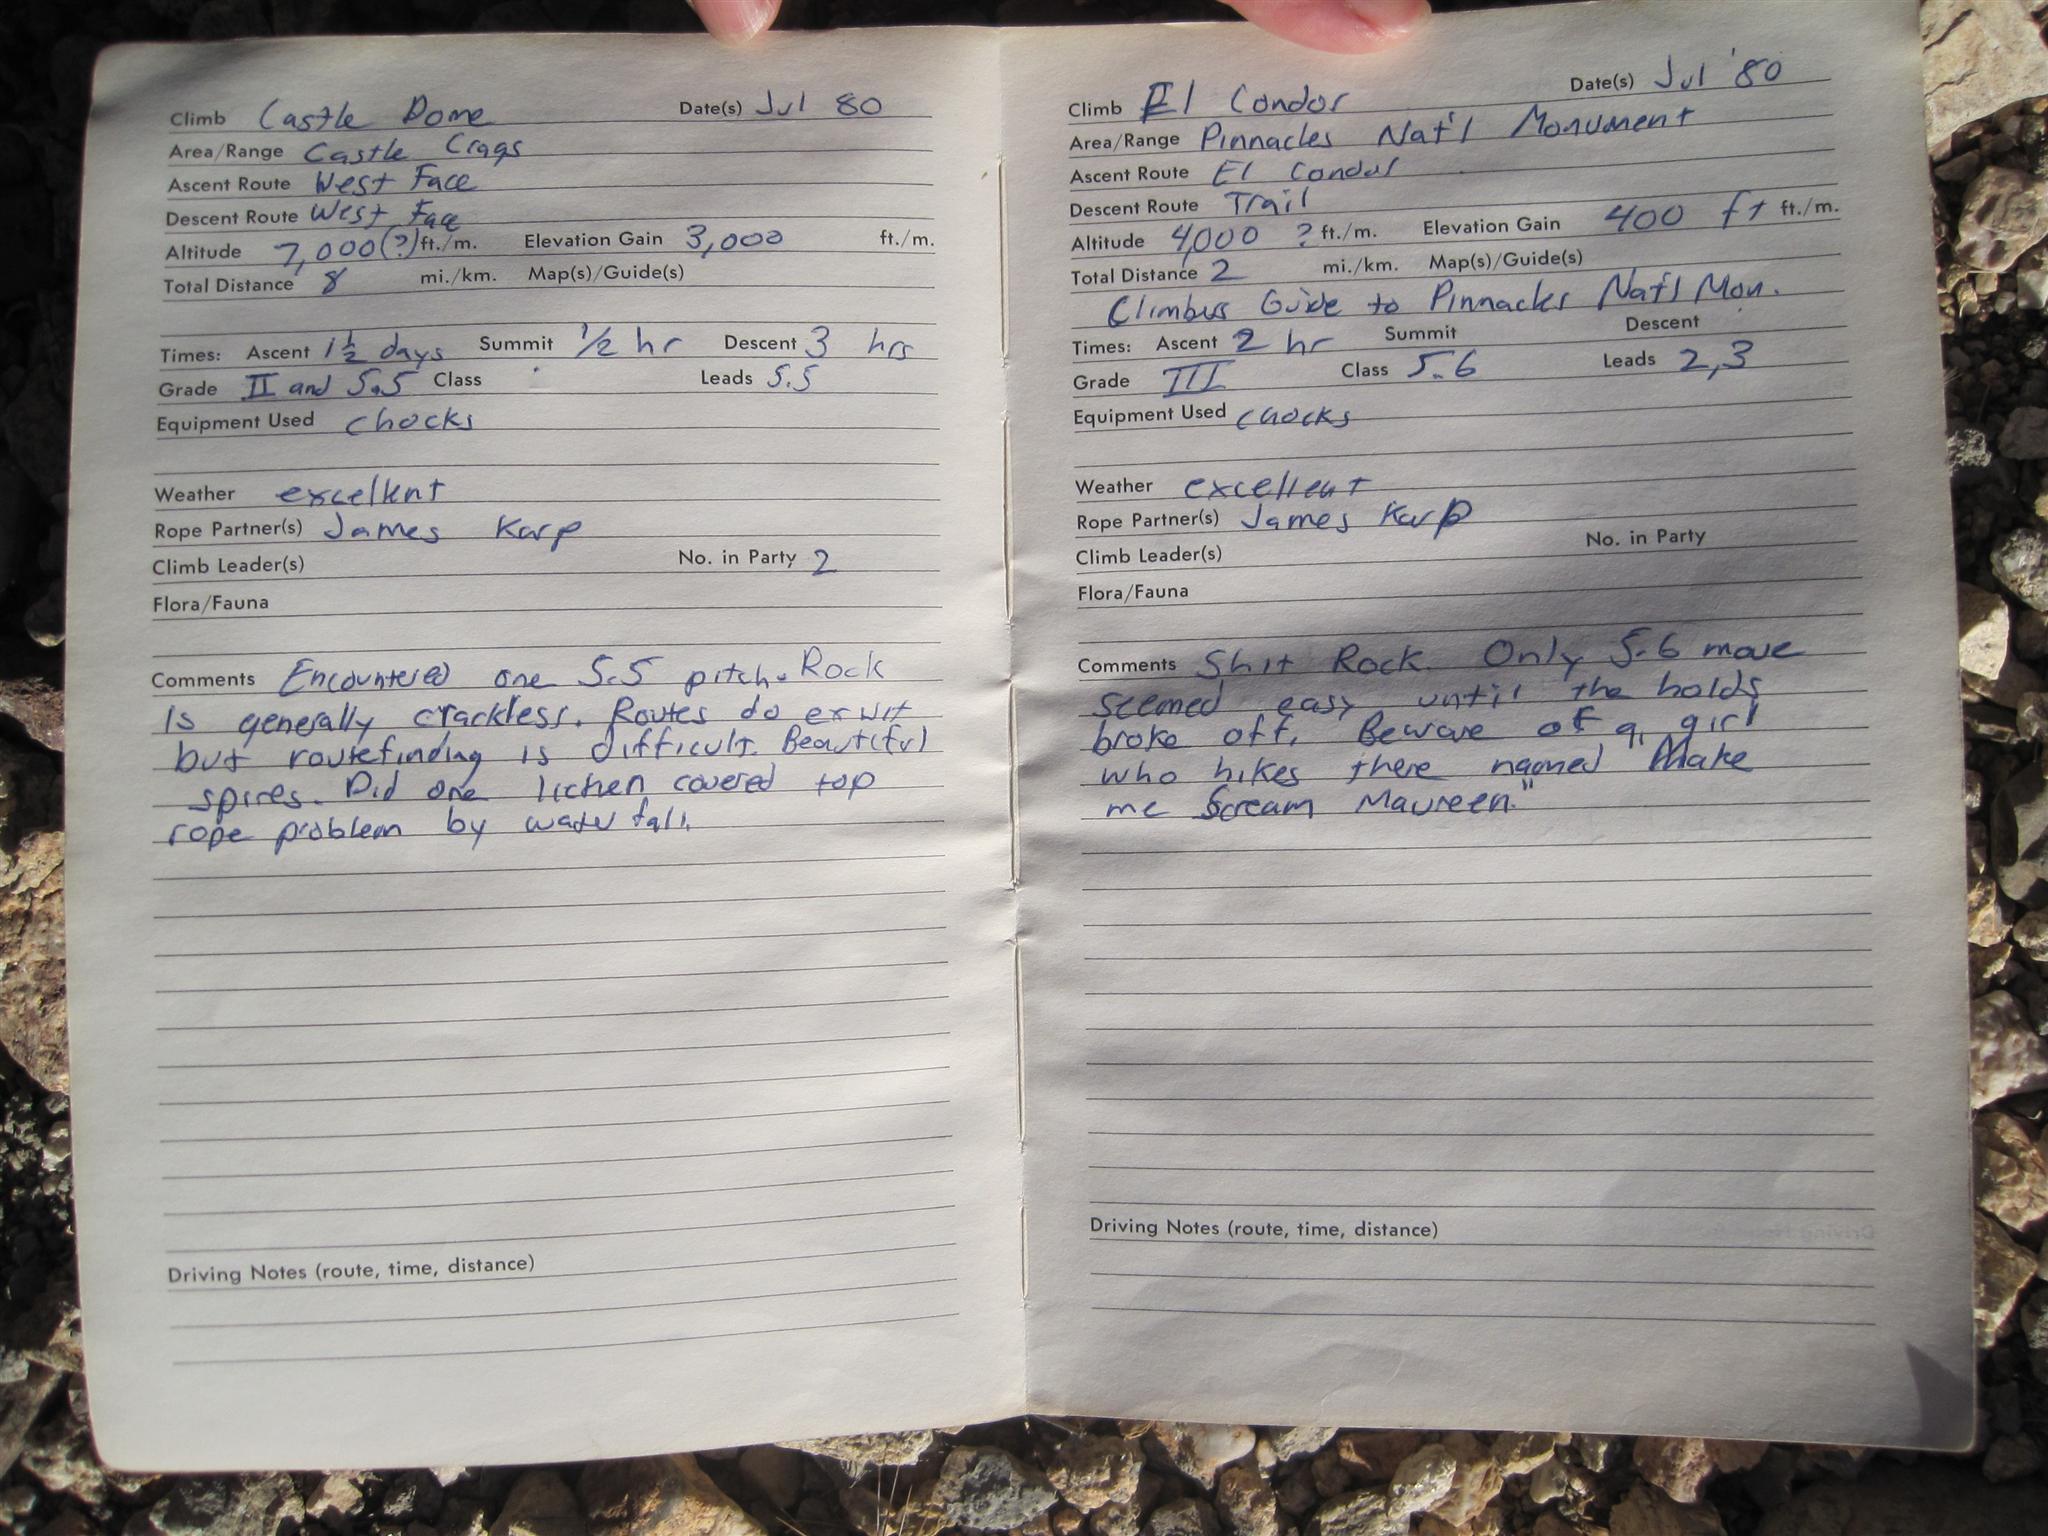 Climb Castle Dome Date(s) Jul 80
Area/Range Castle Crags
Ascent Route West Face
Descent Route West Face
Altitude 7,000(?) ft./m. Elevation Gain 3,000 ft./m.
Total Distance 8 mi./km. Map(s)/Guide(s)
Times: Ascent 1½ days Summit ½ hr Descent 3 hrs
Grade II and 5.5 Class Leads 5.5
Equipment Used chocks
Weather excellent
Rope Partner(s) James Karp
Climb Leader(s) No. in Party 2
Flora/Fauna
Comments Encountered one 5.5 pitch. Rock
is generally crackless. Routes do exist
but routefinding is difficult. Beautiful
spires. Did one lichen covered top
rope problem by waterfall.
Driving Notes (route, time, distance)
Climb El Condor Date(s) Jul '80
Area/Range Pinnacles Nat'l Monument
Ascent Route El Condor
Descent Route Trail
Altitude 4,000 ? ft./m. Elevation Gain 400 ft ft./m.
Total Distance 2 mi./km. Map(s)/Guide(s)
Climbers Guide to Pinnacles Nat'l Mon.
Times: Ascent 2 hr Summit Descent
Grade III Class 5.6 Leads 2,3
Equipment Used chocks
Weather excellent
Rope Partner(s) James Karp
Climb Leader(s) No. in Party
Flora/Fauna
Comments Shit Rock. Only 5.6 move
seemed easy until the holds
broke off. Beware of a girl
who hikes there named Make
me Scream Maureen."
Driving Notes (route, time, distance)